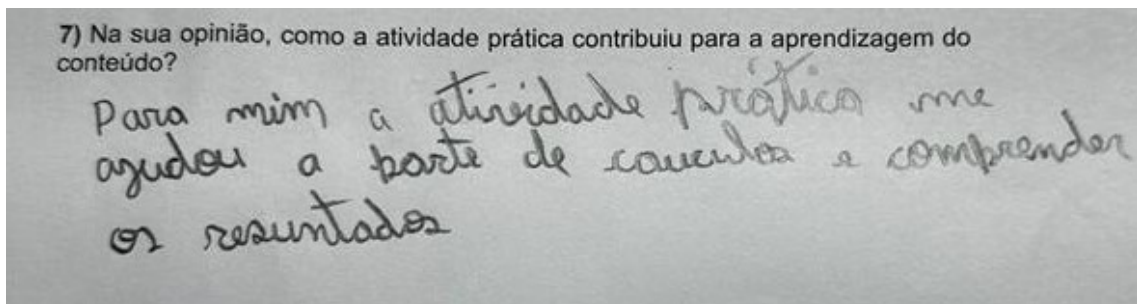 7) Na sua opinião, como a atividade prática contribuiu para a aprendizagem do
conteúdo?
Para mim a atividade prática me
ajudou a parte de cauculos e comprender
os resuntados